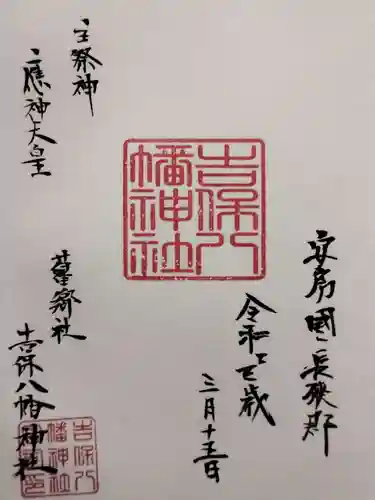 安房國長狭郡
令和四歳
三月十五日
吉保八
幡神社
主祭神
應神天皇
旧郷社
吉保八幡神社
吉保八
幡神社